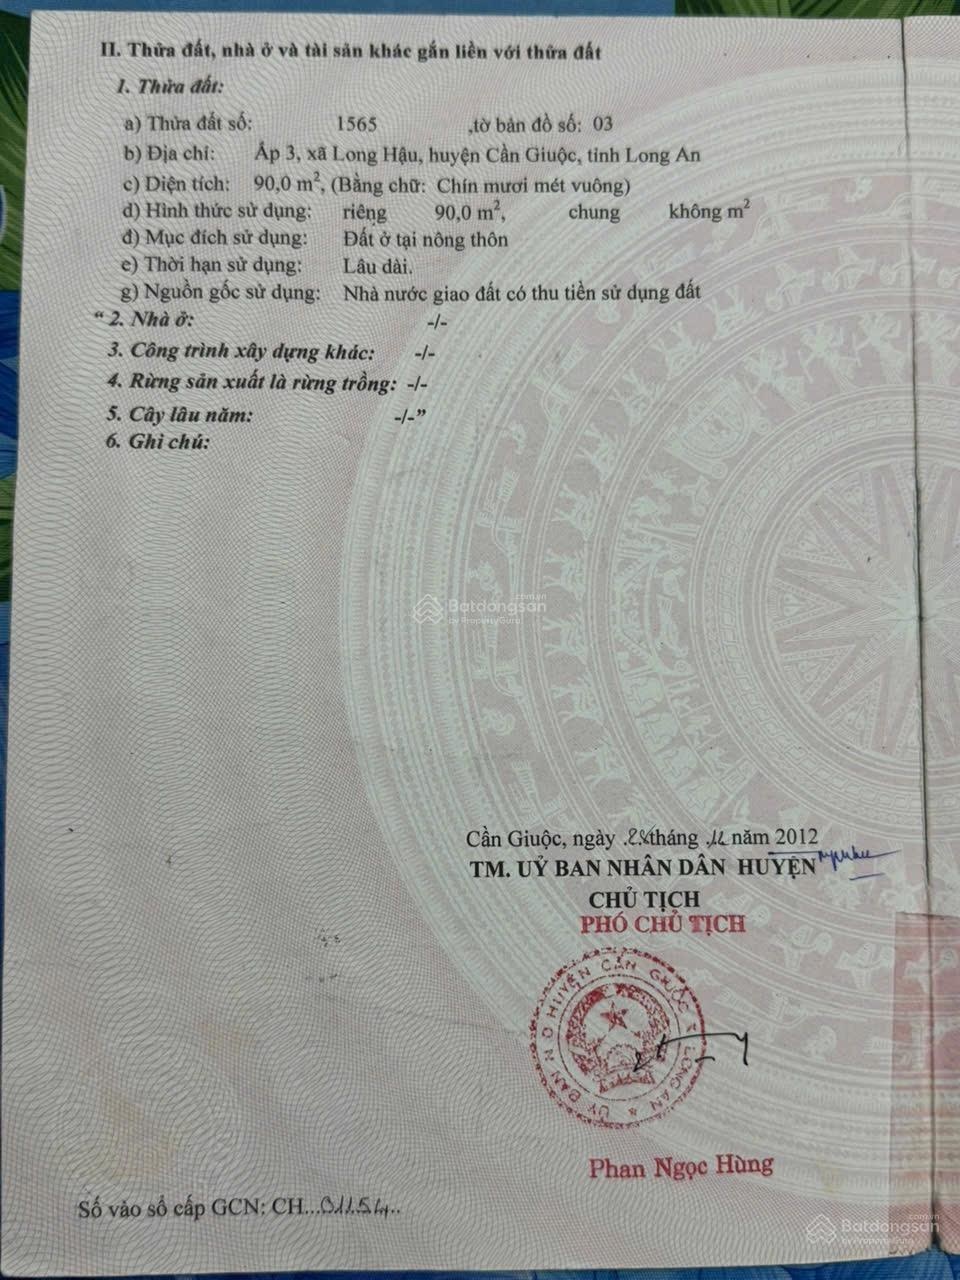 II. Thửa đất, nhà ở và tài sản khác gắn liền với thửa đất
1. Thửa đất:
a) Thửa đất số: 1565 ,tờ bản đồ số: 03
b) Địa chỉ: Ấp 3, xã Long Hậu, huyện Cần Giuộc, tỉnh Long An
c) Diện tích: 90,0 m², (Bằng chữ: Chín mươi mét vuông)
d) Hình thức sử dụng: riêng 90,0 m², chung không m²
đ) Mục đích sử dụng: Đất ở tại nông thôn
e) Thời hạn sử dụng: Lâu dài.
g) Nguồn gốc sử dụng: Nhà nước giao đất có thu tiền sử dụng đất
“ 2. Nhà ở: -/-
3. Công trình xây dựng khác: -/-
4. Rừng sản xuất là rừng trồng: -/-
5. Cây lâu năm: -/-”
6. Ghi chú:
Batdongsan.com.vn
by PropertyGuru
Cần Giuộc, ngày tháng năm 2012
TM. UỶ BAN NHÂN DÂN HUYỆN
CHỦ TỊCH
PHÓ CHỦ TỊCH
ỦY BAN N D HUYỆN CẦN GIUỘC ★ LONG AN ★
Phan Ngọc Hùng
Số vào sổ cấp GCN: CH...01154..
Batdongsan.com.vn
by PropertyGuru